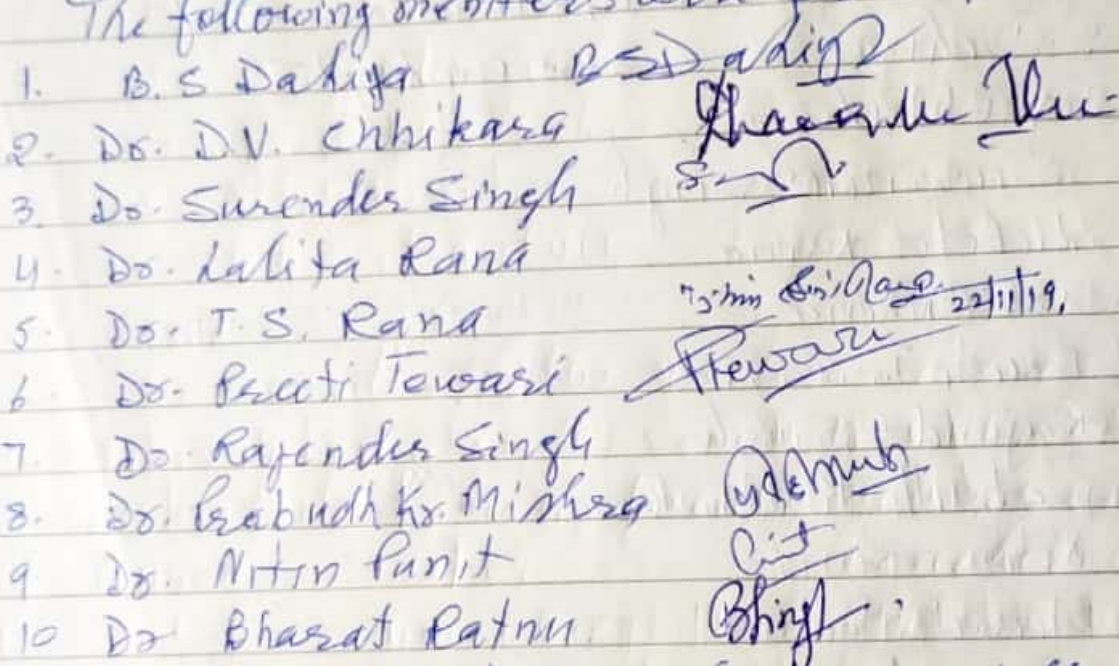 The following members
1. B. S Dahiya BSDahiya
2. Dr. D.V. Chhikara
3. Dr. Surender Singh
4. Dr. Lalita Rana
5. Dr. T. S. Rana 22/11/19,
6 Dr. Preeti Tewari PTewari
7. Dr. Rajender Singh
8. Dr. Prabudh Kr. Mishra
9 Dr. Nitin Punit
10 Dr Bharat Ratnu